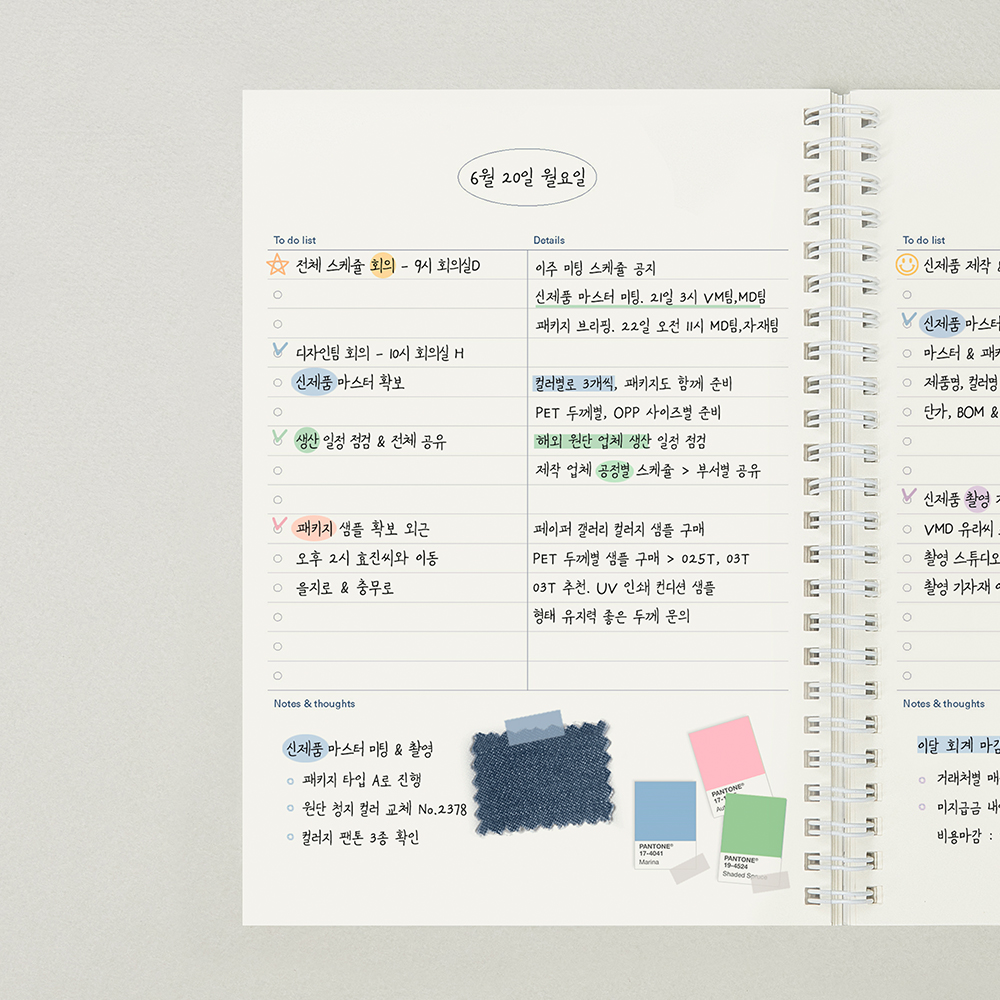 6월 20일 월요일
To do list
Details
전체 스케쥴 회의 - 9시 회의실D
이주 미팅 스케쥴 공지
신제품 마스터 미팅. 21일 3시 VM팀,MD팀
패키지 브리핑. 22일 오전 11시 MD팀,자재팀
디자인팀 회의 - 10시 회의실 H
신제품 마스터 확보
컬러별로 3개씩, 패키지도 함께 준비
PET 두께별, OPP 사이즈별 준비
생산 일정 점검 & 전체 공유
해외 원단 업체 생산 일정 점검
제작 업체 공정별 스케쥴 > 부서별 공유
패키지 샘플 확보 외근
페이퍼 갤러리 컬러지 샘플 구매
오후 2시 효진씨와 이동
PET 두께별 샘플 구매 > 025T, 03T
을지로 & 충무로
03T 추천. UV 인쇄 컨디션 샘플
형태 유지력 좋은 두께 문의
Notes & thoughts
신제품 마스터 미팅 & 촬영
패키지 타입 A로 진행
원단 청지 컬러 교체 No.2378
컬러지 팬톤 3종 확인
PANTONE®
17-1
PANTONE®
17-4041
Marina
PANTONE®
19-4524
Shaded Spruce
To do list
신제품 제작
신제품 마스터
마스터 & 패키
제품명, 컬러명
단가, BOM &
신제품 촬영
VMD 유라씨
촬영 스튜디오
촬영 기자재
Notes & thoughts
이달 회계 마감
거래처별
미지급금
비용마감 :